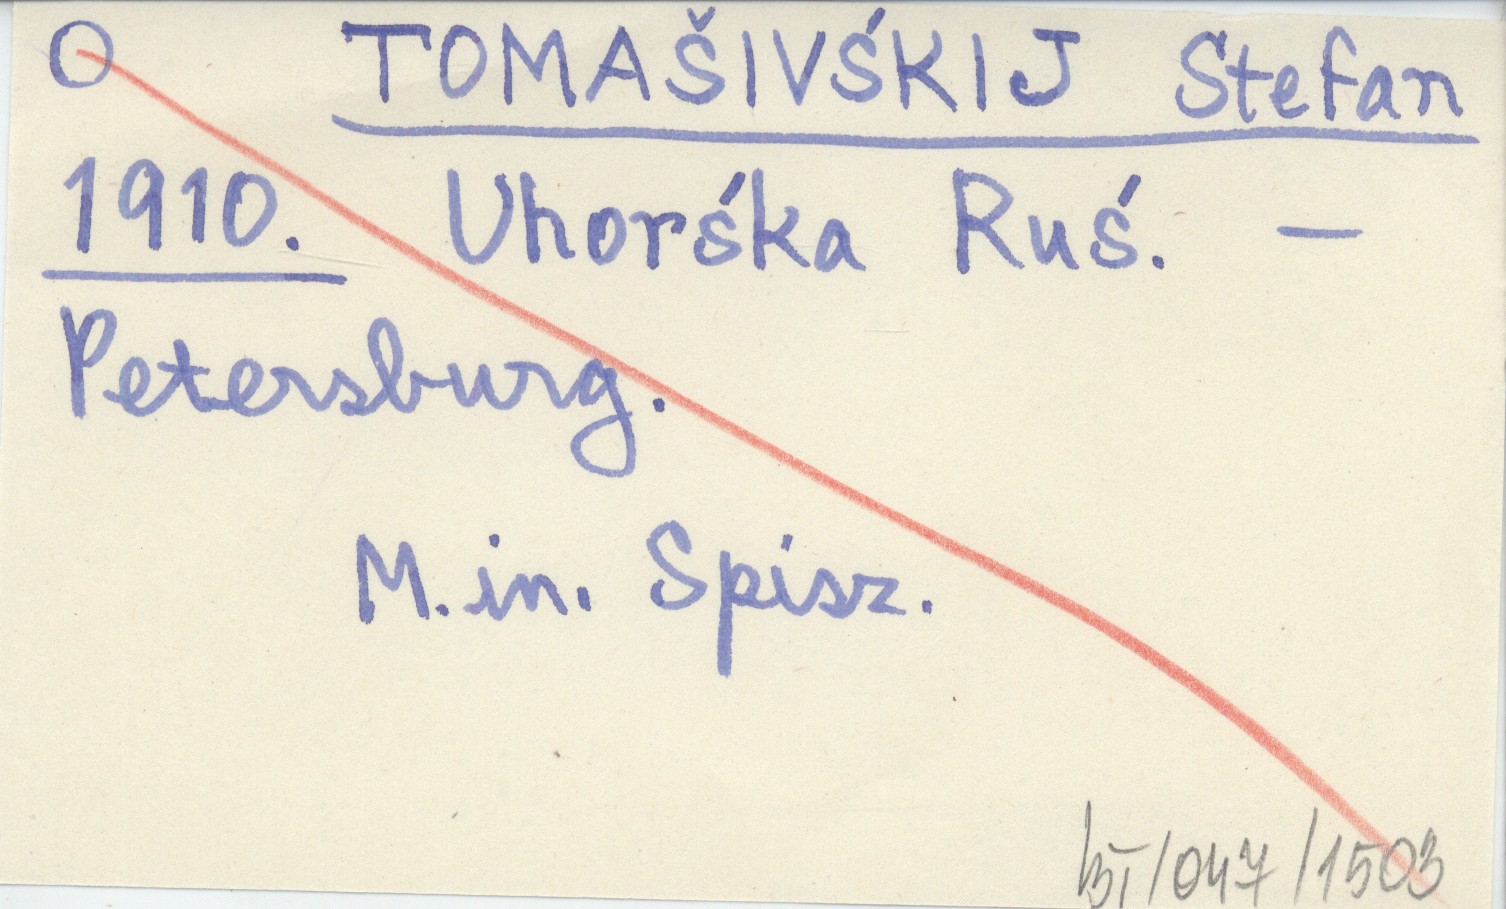 O TOMAŠIVŚKIJ Stefan
1910. Uhorśka Ruś. —
Petersburg.
M.in. Spisz.
/047/1503